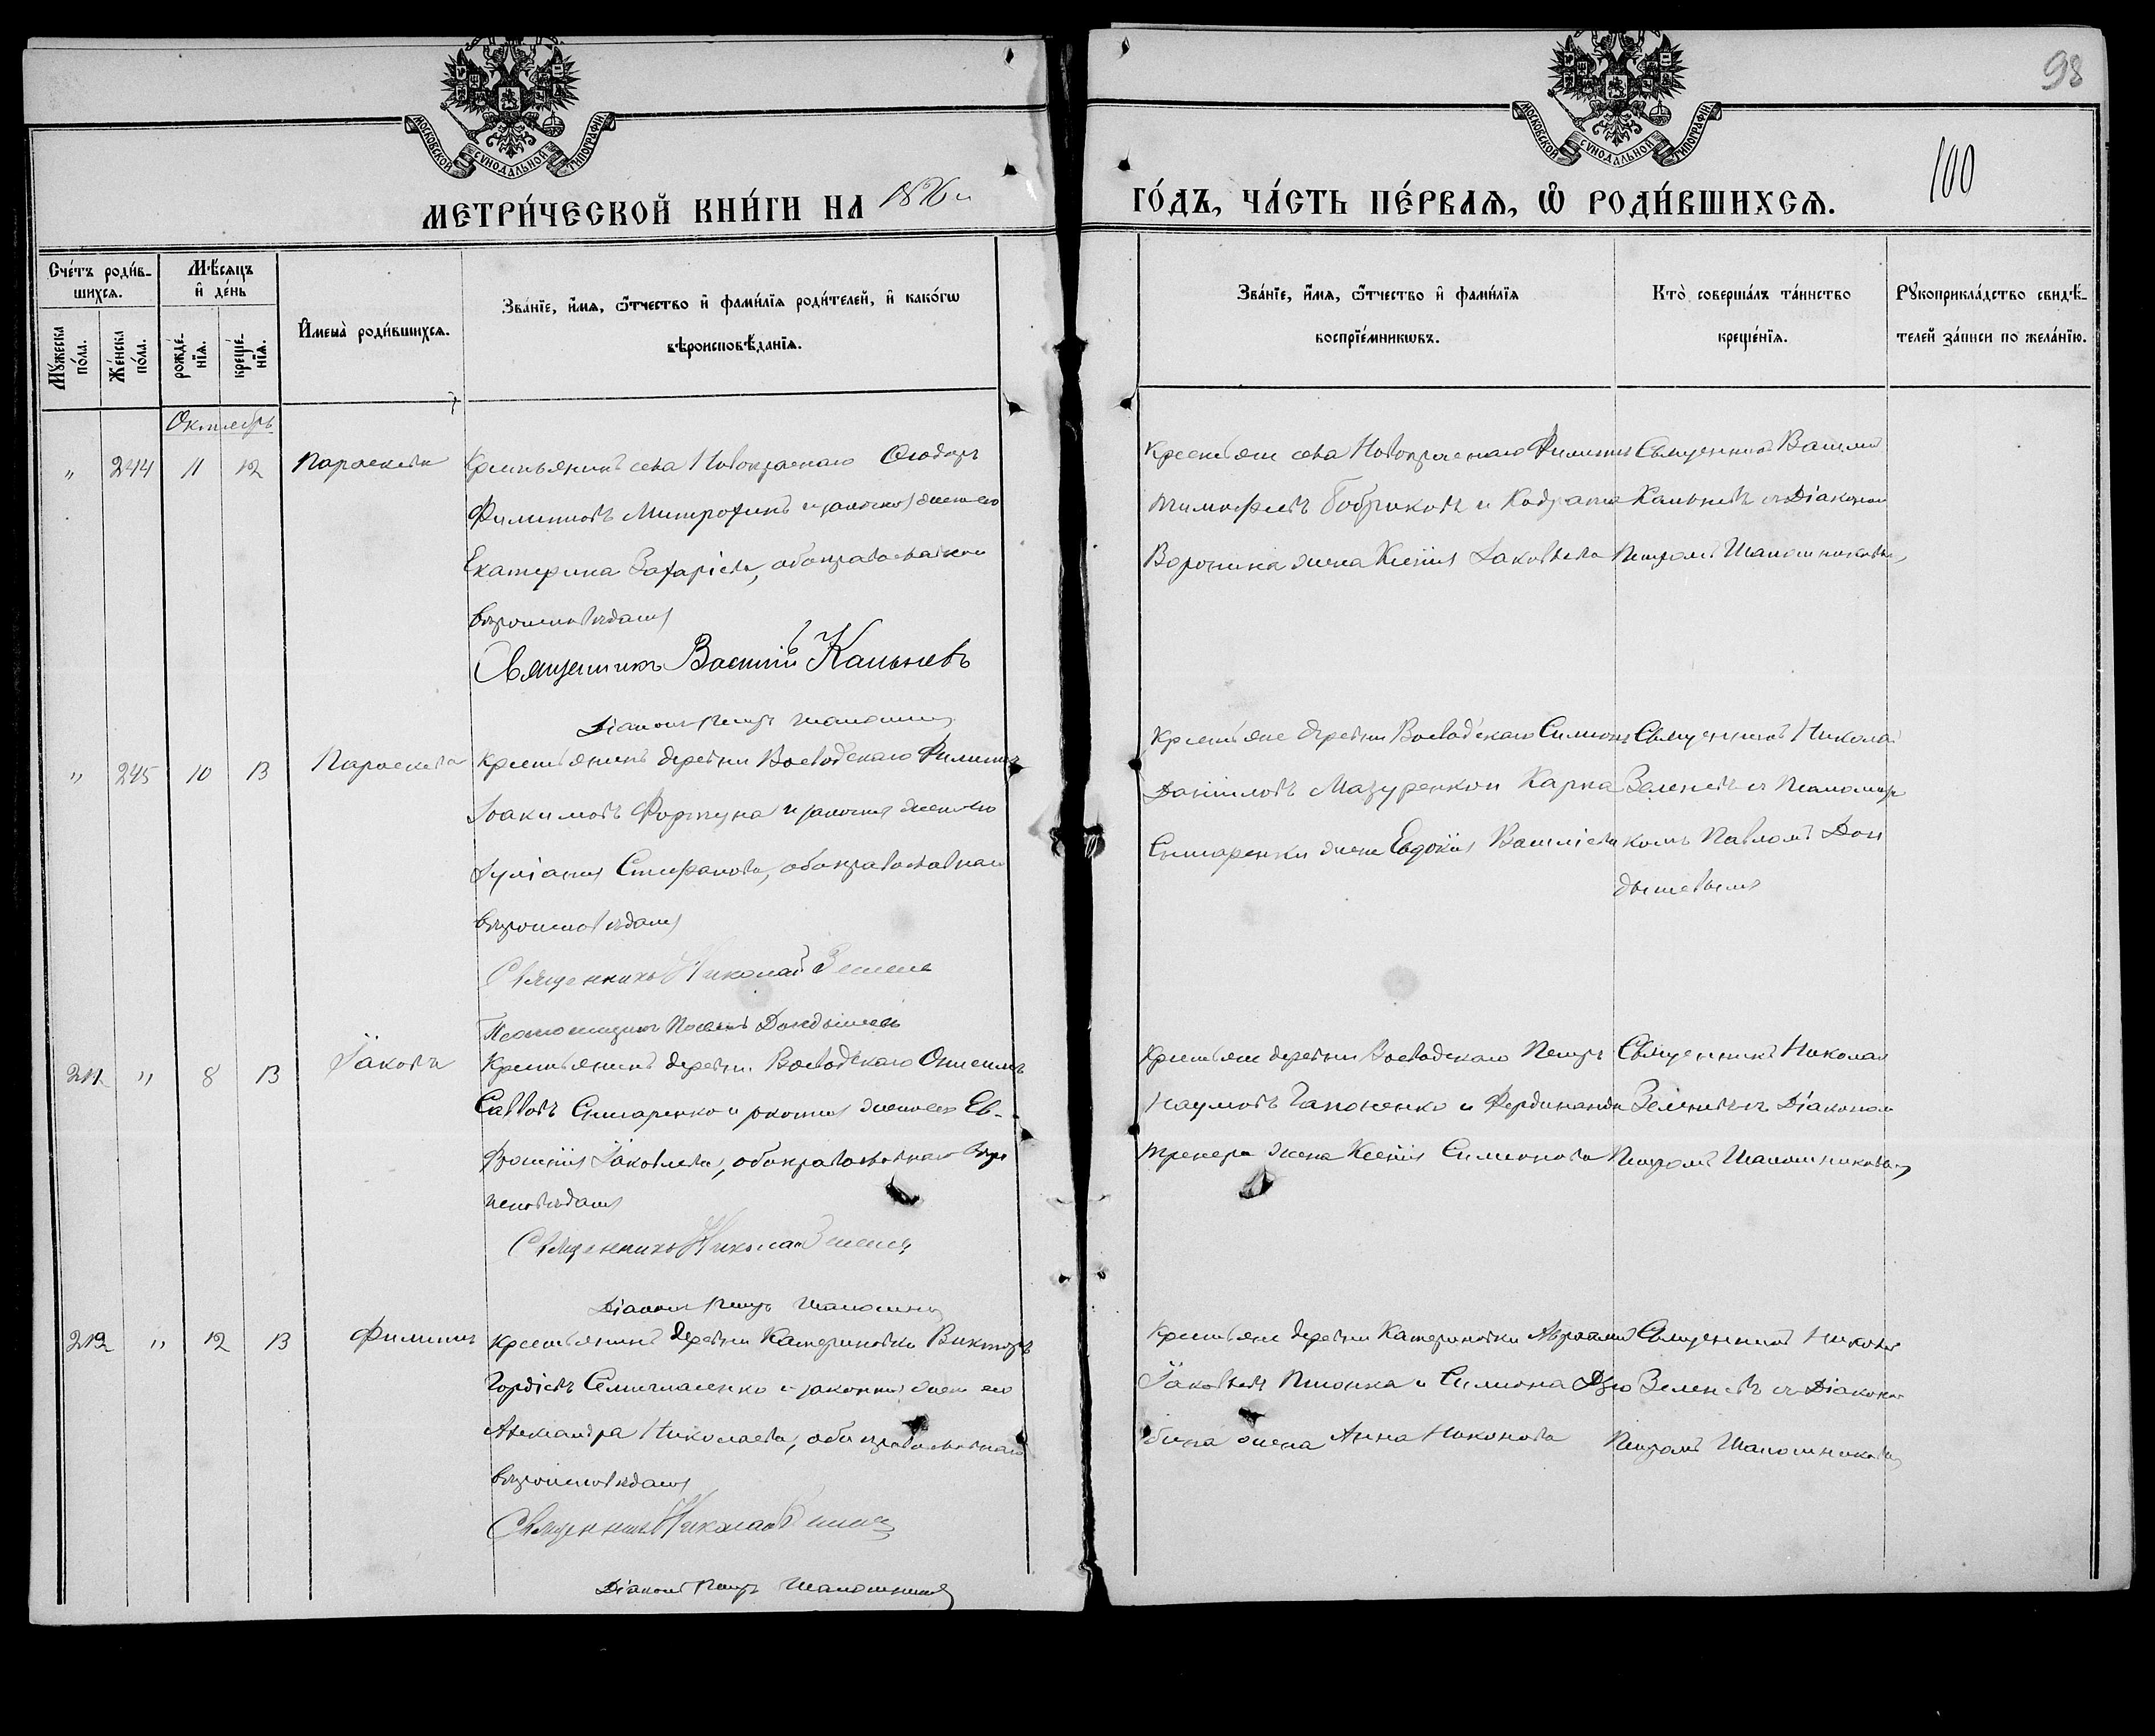 98
100
МОСКОВСКОЙ СѴНОДАЛЬНОЙ ТИПОГРАФІИ
МОСКОВСКОЙ СѴНОДАЛЬНОЙ ТИПОГРАФІИ
МЕТРИ́ЧЕСКОЙ КНИ́ГИ НА 1876 й
ГО́ДЪ, ЧА́СТЬ ПЕ́РВАѦ, Ѿ РОДИ́ВШИХСѦ.
Сче́тъ роди́в-
шихсѧ.
Мꙋ́жеска по́ла.
Же́нска по́ла.
Мѣ́сѧцъ
и҆ де́нь
рожде́-нїѧ.
креще́-нїѧ.
И҆мена̀ роди́вшихсѧ.
Зва́нїе, и҆́мѧ, ѻ҆́тчество и҆ фами́лїѧ роди́телей, и҆ како́гѡ
вѣроисповѣ́данїѧ.
Зва́нїе, и҆́мѧ, ѻ҆́тчество и҆ фами́лїѧ
воспрїе́мникѡвъ.
Кто̀ соверша́лъ та́инство
креще́нїѧ.
Рꙋкоприкла́дство свидѣ́-
телей за́писи по жела́нїю.
Октябрь
" 244 11 12 Параскева
Крестьянинъ села Новокраснаго Ѳеодоръ
Филиповъ Митрофанъ и законная жена его
Екатерина Захаріева, оба православнаго
вѣроисповѣданія
Священникъ Василій Кальневъ
Діаконъ Петръ Шапошник
Крестьяне села Новокраснаго Филипъ
Тимофеевъ Бобриковъ и Кодрата
Воронина жена Ксенія Іаковлева
Священникъ Василій
Кальневъ съ Діакономъ
Петромъ Шапошниковымъ
" 245 10 13 Параскева
Крестьянинъ деревни Воеводскаго Филипъ
Іоакимовъ Фортуна и законная жена его
Іуліанія Стефанова, оба православнаго
вѣроисповѣданія
Священникъ Николай Зелене
Псаломщикъ Павелъ Дондышевъ
Крестьяне деревни Воеводскаго Симеонъ
Даніиловъ Мазуренко и Карпа
Слюсаренки жена Евдокія Василіева
Священникъ Николай
Зеленевъ съ Псаломщи
комъ Павломъ Дон
дышевымъ
211 " 8 13 Іаковъ
Крестьянинъ деревни Воеводскаго Онисимъ
Саввовъ Слюсаренко и законная жена его Ев-
фросинія Іаковлева, оба православнаго вѣро
исповѣданія
Священникъ Николай Зелене
Діаконъ Петръ Шапошник
Крестьяне деревни Воеводскаго Петръ
Наумовъ Гапоненко и Фердинанда
Тренера жена Ксенія Симеонова
Священникъ Николай
Зеленевъ съ Діакономъ
Петромъ Шапошниковымъ
212 " 12 13 Филипъ
Крестьянинъ деревни Катериновки Викторъ
Гордіевъ и законная жена его
Александра Николаева, оба православнаго
вѣроисповѣданія
Священникъ Николай Зелене
Діаконъ Петръ Шапошников
Крестьяне деревни Катериновки Авраамій
Іаковлевъ и Симеона Дзю
бина жена Анна Никонова
Священникъ Николай
Зеленевъ съ Діакономъ
Петромъ Шапошниковымъ